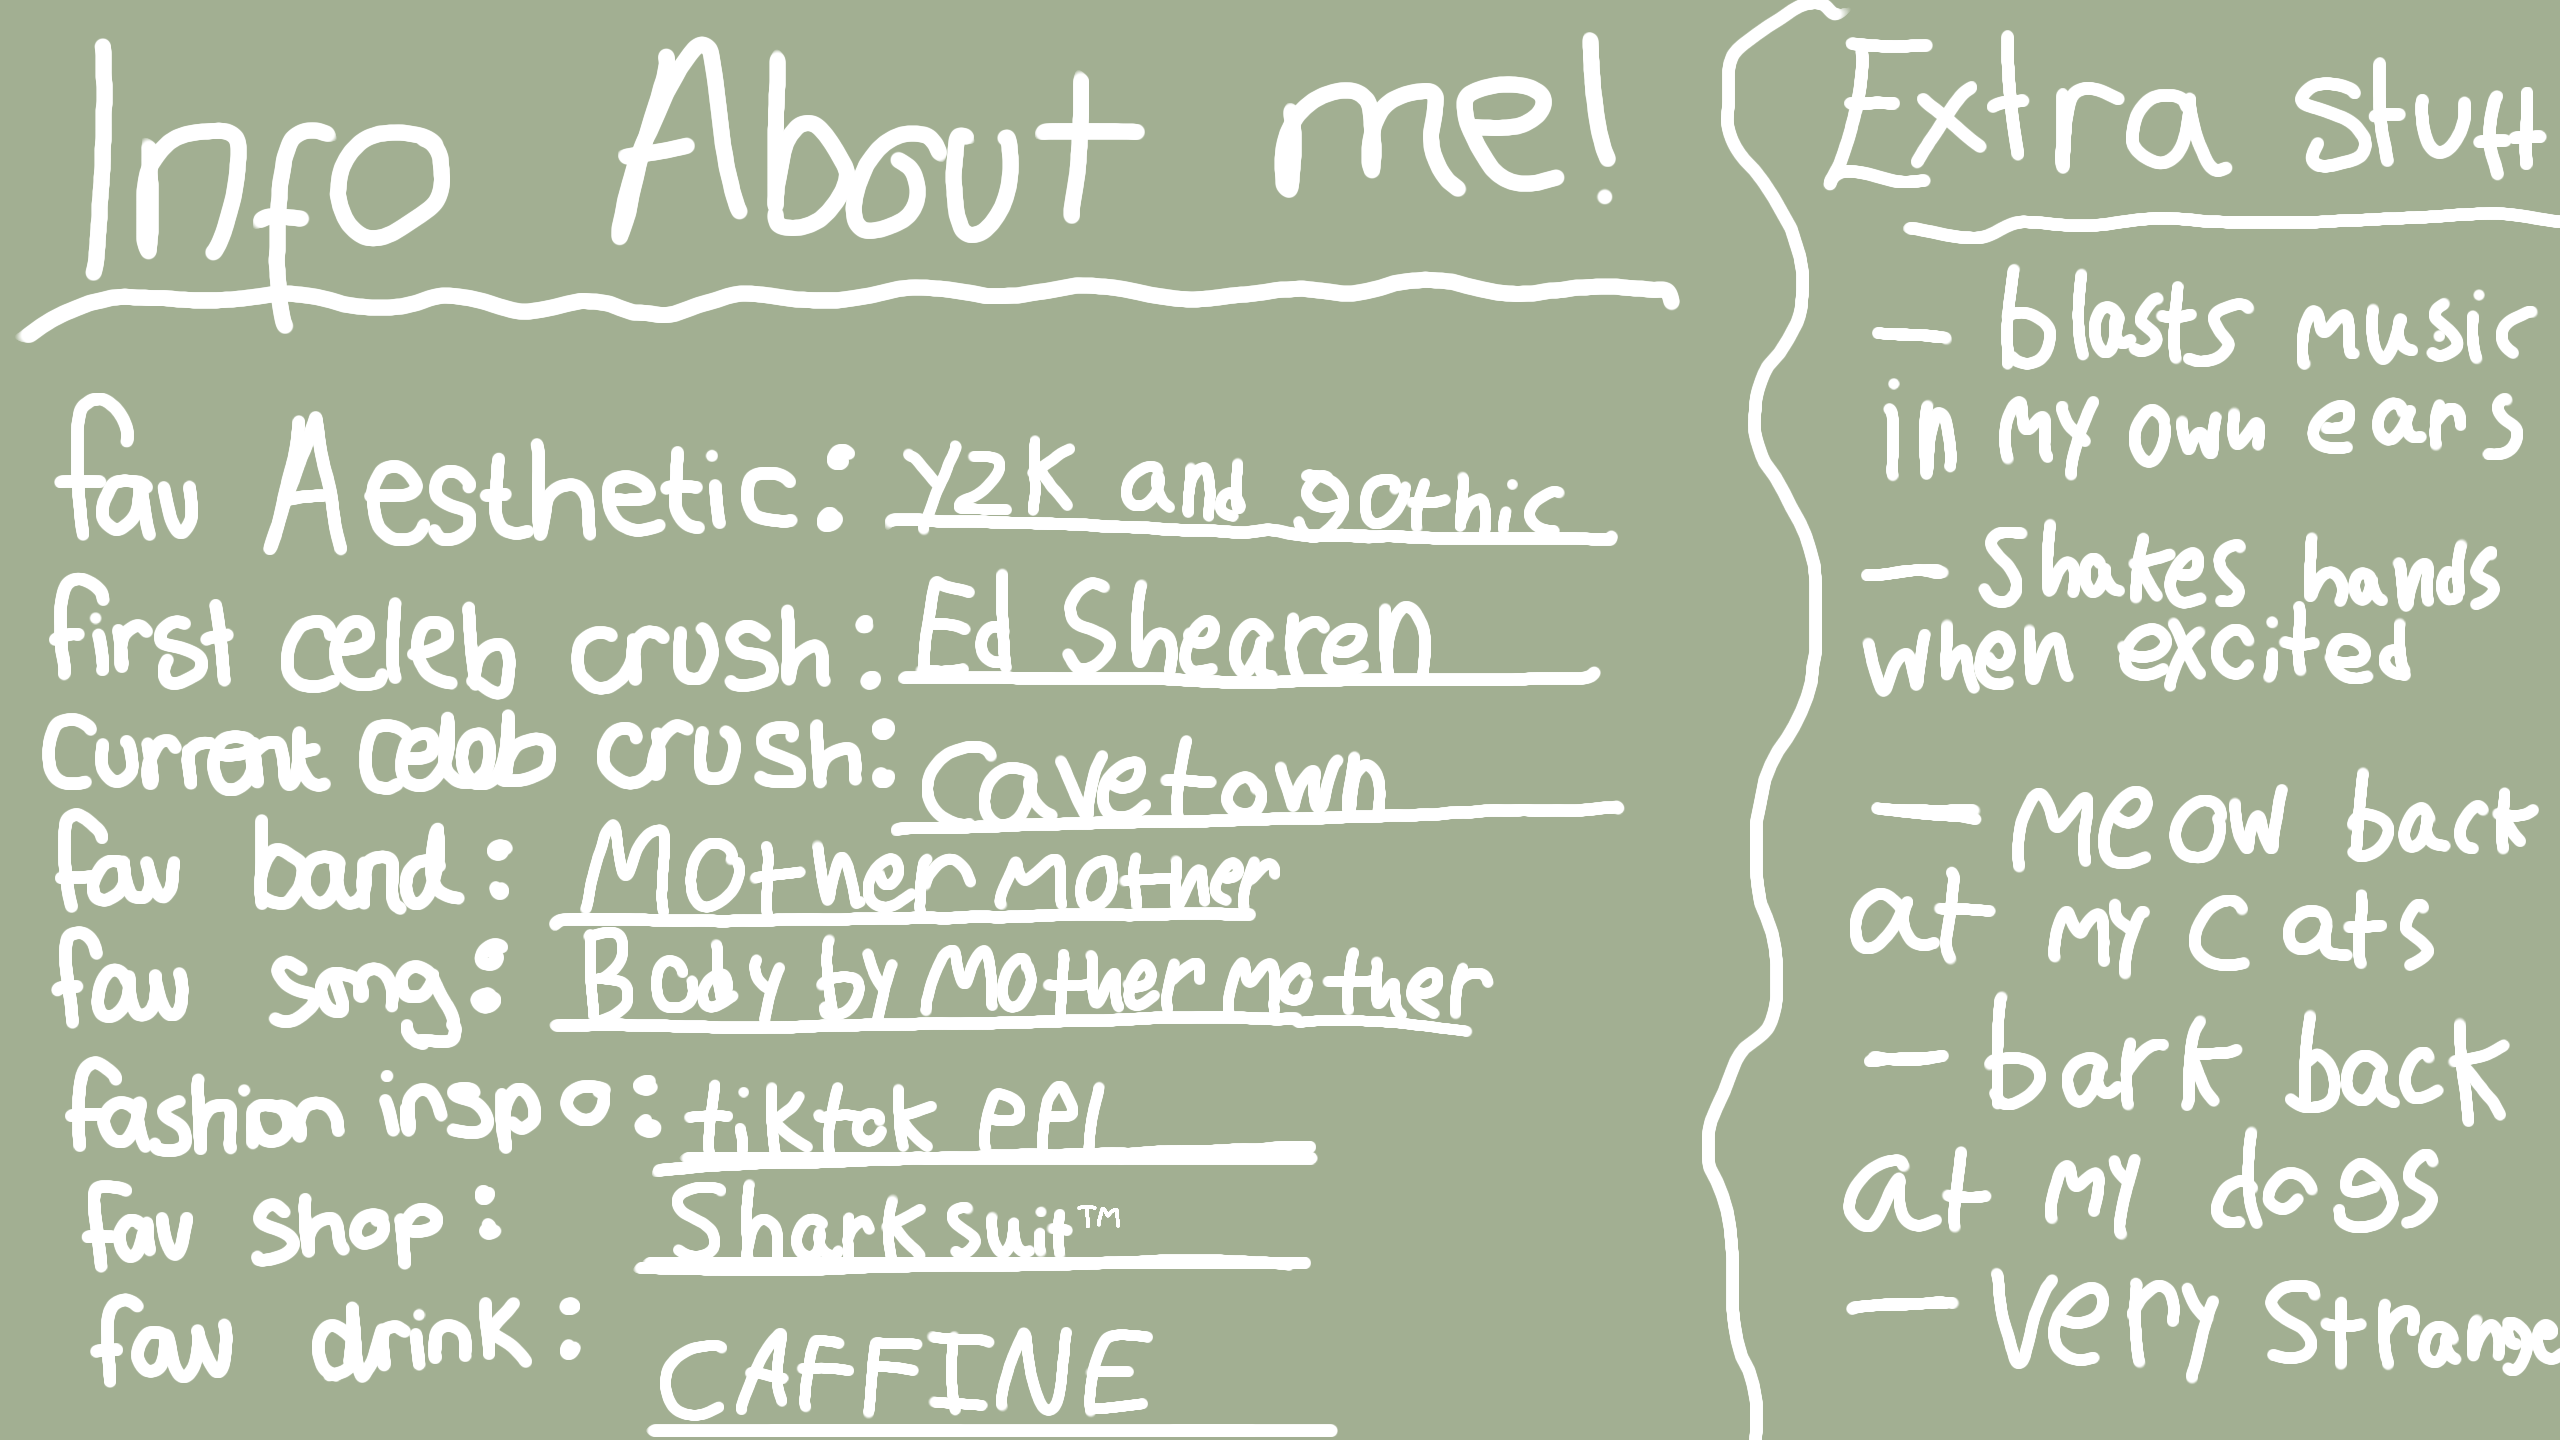 Info About me!
fav Aesthetic: Y2K and gothic
first celeb crush: Ed Shearen
Current celeb crush: Cavetown
fav band: Mother mother
fav song: Body by Mother mother
fashion inspo: tiktok ppl
fav shop: Shark suit™
fav drink: CAFFINE
Extra Stuff
- blasts music
in my own ears
- Shakes hands
when excited
- Meow back
at my cats
- bark back
at my dogs
- Very Strange